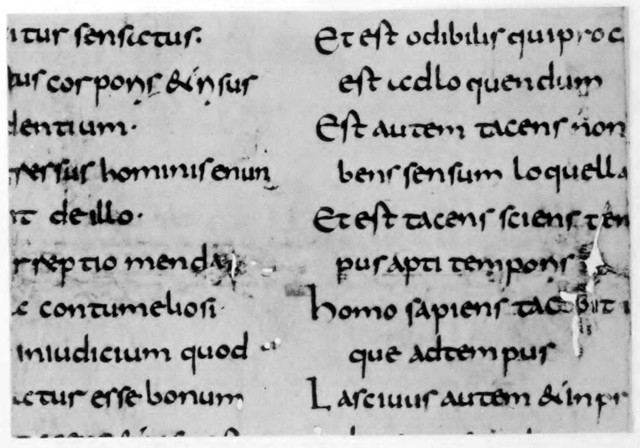 itur sensatus·
tus corporis & risus
dentium·
gressus hominis enun
nt de illo·
rreptio mendax
contumeliosi·
iniudicium quod
atur esse bonum
Et est odibilis qui proc
est ad loquendum
Est autem tacens non
bens sensum loquella
Et est tacens sciens tem
pus apti temporis
homo sapiens tacebit
que ad tempus
Lasciuus autem & inpr